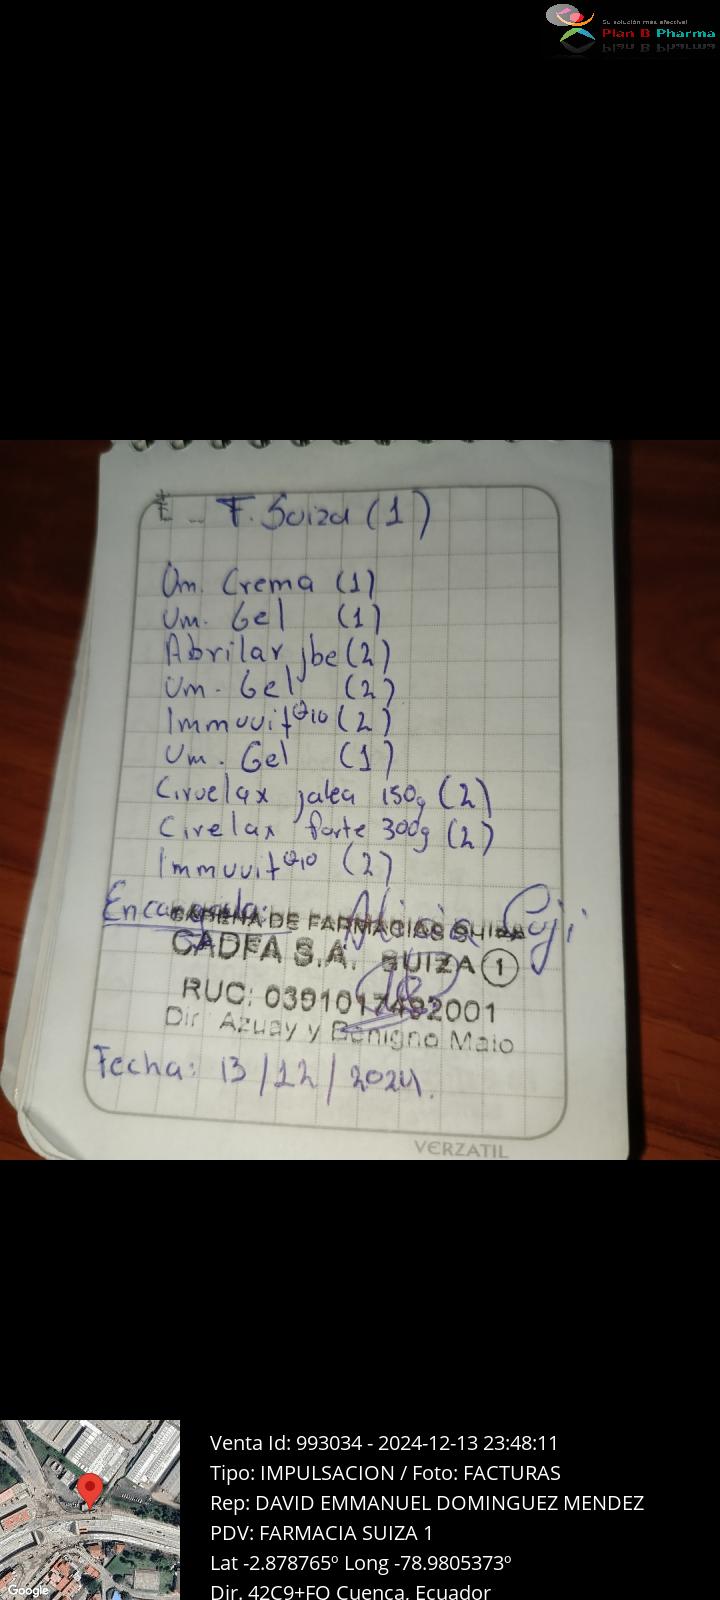 Su solución mas efectiva!
Plan B Pharma
F. Suiza (1)
Um. Crema (1)
Um. Gel (1)
Abrilar jbe (2)
Um. Gel (2)
Immuvit Q10 (2)
Um. Gel (1)
Ciruelax jalea 150g (2)
Cirelax forte 300g (2)
Immuvit Q10 (2)
Encargada:
CADENA DE FARMACIAS SUIZA
CADFA S.A. SUIZA 1
RUC: 0391017492001
Dir: Azuay y Benigno Malo
Fecha: 13/12/2024.
VERZATIL
Google
Venta Id: 993034 - 2024-12-13 23:48:11
Tipo: IMPULSACION / Foto: FACTURAS
Rep: DAVID EMMANUEL DOMINGUEZ MENDEZ
PDV: FARMACIA SUIZA 1
Lat -2.878765º Long -78.9805373º
Dir. 42C9+FQ Cuenca, Ecuador